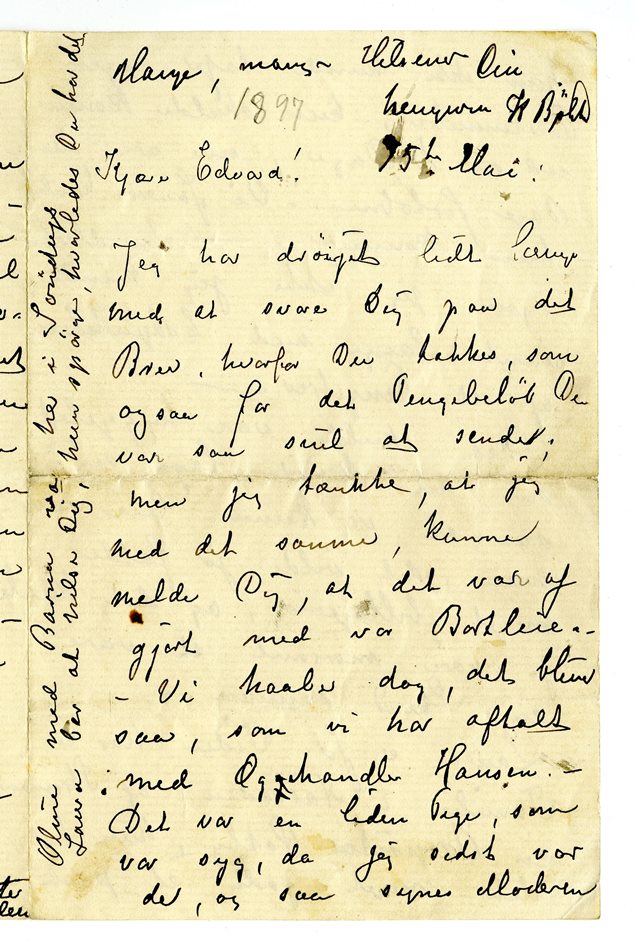 Mange, mange Hilsener Din
hengivne H Böldt
1897
Kjære Edvard! 15de Mai.
Jeg har dröiget lidt længe
med at svare Dig paa det
Brev, hvorfor Du takkes, som
ogsaa for det Pengebelöb Du
var saa snil at sende,
men jeg tænkte, at jeg
med det samme, kunne
melde Dig, at det var af
gjört med vor Bortleie.-
- Vi haaber dog, det bliver
saa, som vi har aftalt
med Hansen. -
Det var en liden Pige, som
var syg, da jeg sidst var
der, og saa synes Moderen
med Barna var her i Söndags
Laura ber at hilse Dig, hun spörger, hvorledes Du har det